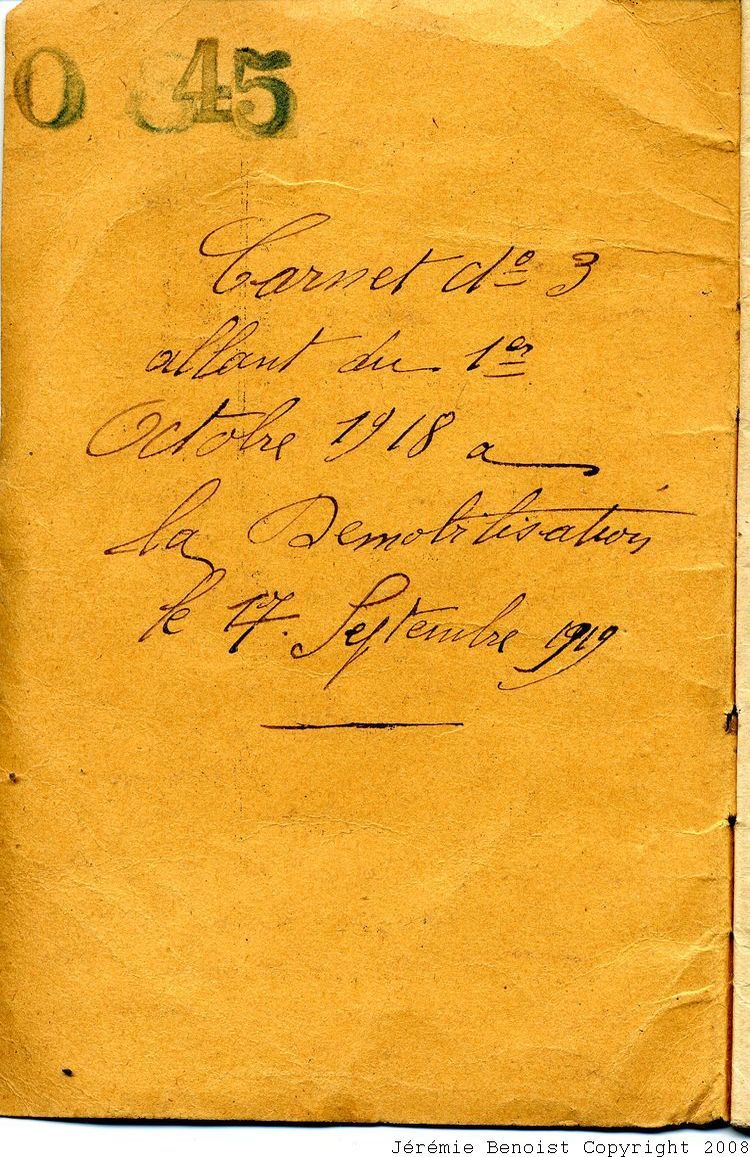 O 45
Carnet No 3
allant du 1er
Octobre 1918 a
la Demobilisation
le 17. Septembre 1919
Jérémie Benoist Copyright 2008